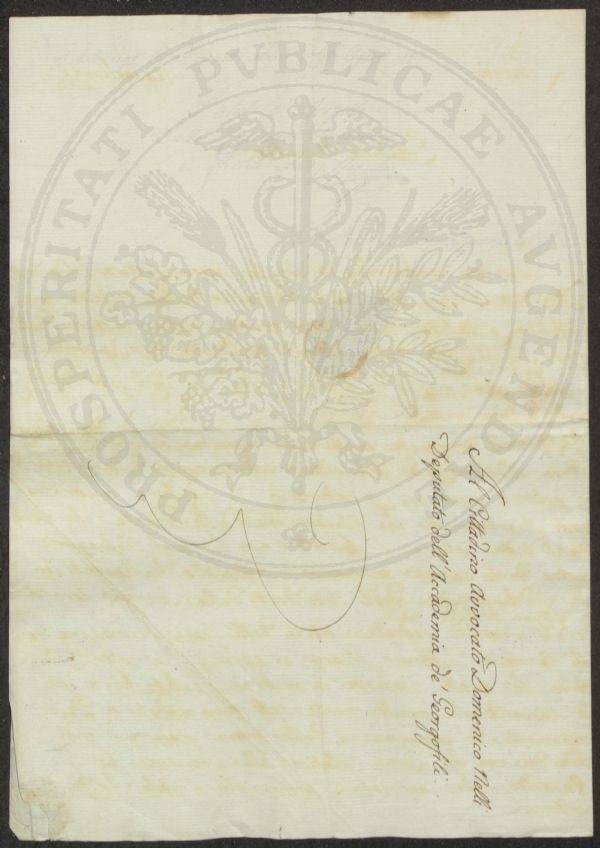 PROSPERITATI PVBLICAE AVGENDAE
Al Cittadino Avvocato Domenico Nelli
Deputato dell'Accademia de' Georgofili.